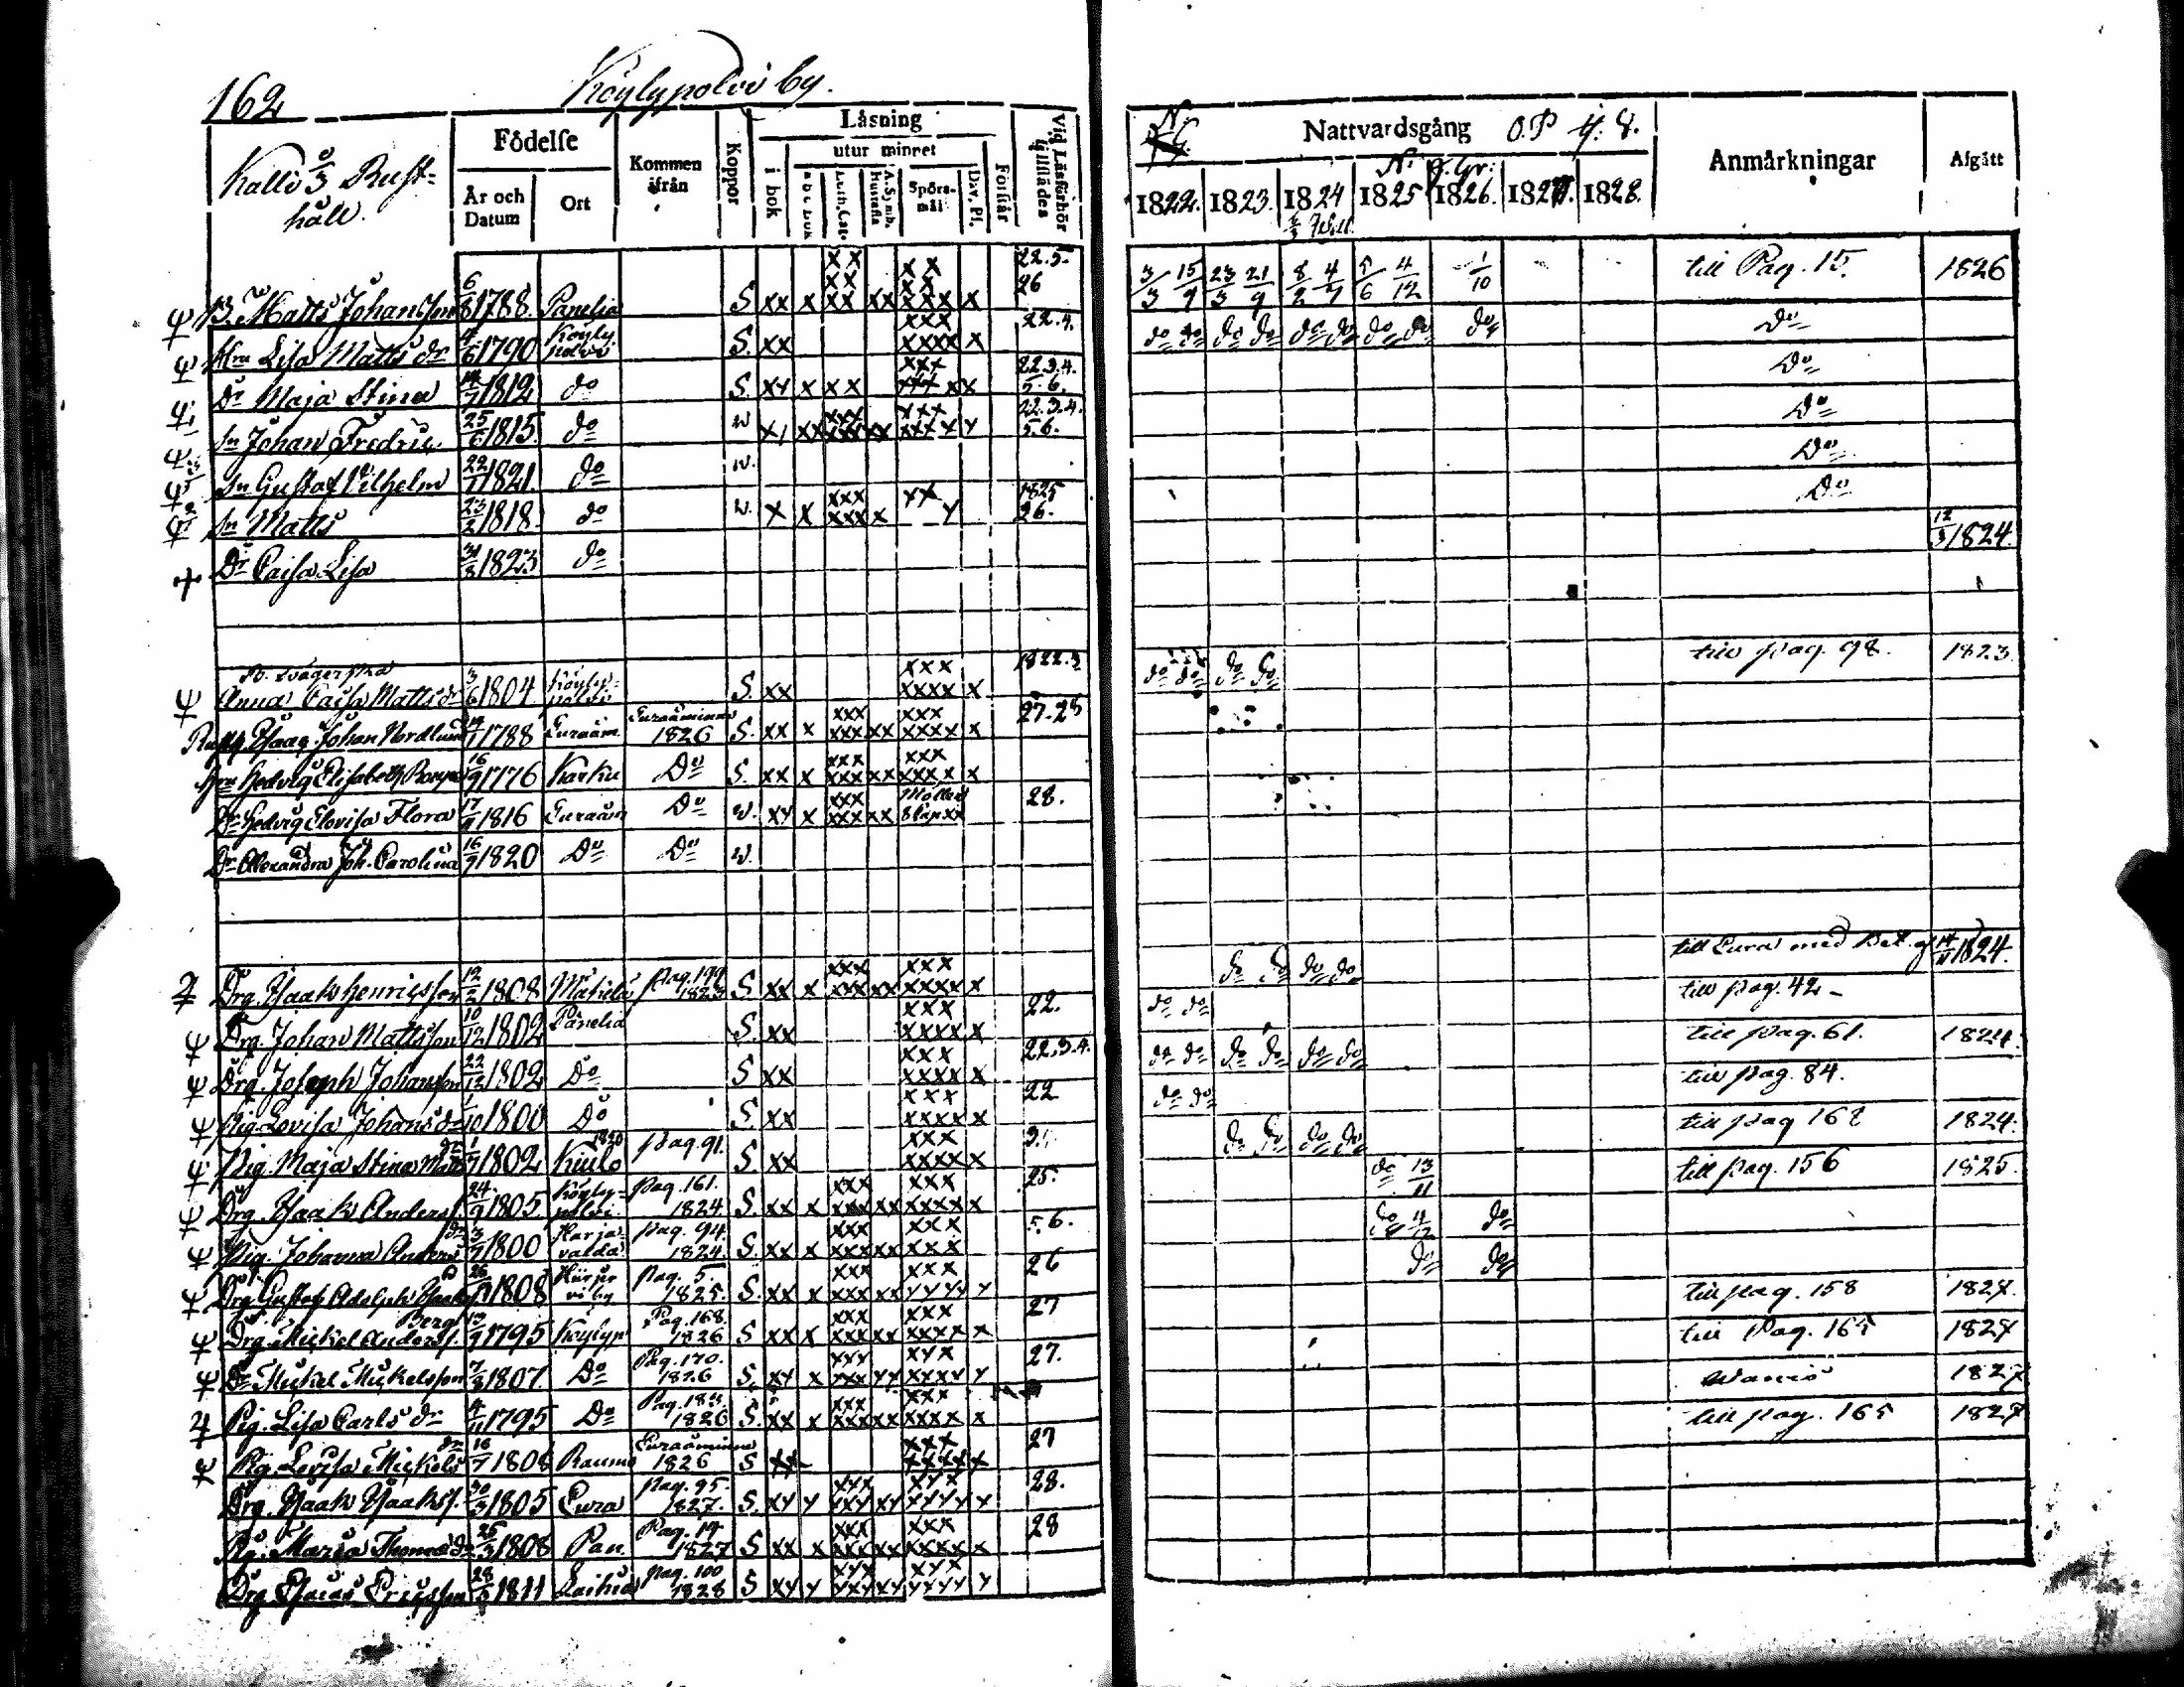 162 Köylypolvi by.
Kallo 2/3 Rust-
håll.
Födelse
År och Datum
Ort
Kommen ifrån
Koppor
Läsning
utur minnet
i bok
a b c bok
Luth. Cat.
A. Symb. Hustafla
Spörs-mål
Dav. Ps.
Förstår
Vid Läsförhör tillstädes
Nattvardsgång O.P. 4. 8.
1822. 1823. 1824 1825 1826. 1827. 1828.
Anmärkningar
Afgått
B. Matts Johansson 6/8 1788. Panelia S xx x 22.5. 26 3/3 15/9 23/3 21/9 8/2 4/7 4/12 1/10 till Pag. 15. 1826
Hru Lisa Matts dr 1790 Köylypolvi S. xx xxx xxxx x 22.4. do do do do do do do do do Do
Dr Maja Stina 1812 do S. xx x xx xxx 22.3.4. 5.6. Do
Sn Johan Fredric 25/6 1815. do w xxx 22.3.4. 5.6. Do
Sn Gustaf Vilhelm 22/1 1821. do w. Do
Sn Matts 23/2 1818. do w. x x xxx xxx x xx 1825 26. Do
Dr Caisa Lisa 31/8 1823 do 1824.
Anna Caisa Matts dr 3/6 1804 Köylypolvi S. xx xxx xxxx x 1822.3 do do do do till pag. 98. 1823
Johan Nordlund 1788 Euraåm. Euraåminne 1826 S. xx x xxx xxx xx xxx xxxx x 27.28
Hru Hedvig Elisabeth 16/9 1776 Karku Do S. xx x xxx xxx xx xxx xxxx x
Dr Hedvig Lovisa Flora 1816 Euraåm Do w. xx x xxx xxx xx 28.
Dr Alexandra Joh. Carolina 16/9 1820 Do Do w.
Drg. Isaak Henricsson 12/2 1808 Pag. 199 1823 S xx x xxx xxx xx xxx xxxx x do do do do till Eura med Bet. 14/11 1824.
Drg. Johan Mattsson 10/12 1802 Panelia S. xx xxx xxxx x 22. do do till pag. 42
Drg. Joseph Johansson 22/12 1802 Do S xx xxx xxxx x 22.3.4. do do do do do do till pag. 61. 1824.
Pig. Lovisa Johans dr 1800 Do S xx xxx xxxx x 22 do do till pag. 84.
Pig. Maja Stina Matts dr 1802 Kiulo 1820 pag. 91. S xx xxx xxxx x do do do do till pag 162 1824.
Drg. Isaak Anderss. 24/9 1805 Köylypolvi pag. 161. 1824 S. xx x xxx xxx xx xxx xxxx x 25. do 13/11 till pag. 156 1825.
Pig. Johanna Anders dr 3/7 1800 Harjavalda pag. 94. 1824. S. xx x xxx xxx xx xxx xxx 5.6. do do
Drg. Gustaf Adolph 26 1808 pag. 5. 1825. S. xx x xxx xxx xx xxx xxxx x 26 do do till pag. 158 1827.
Berg
Drg. Mickel Anderss. 13/9 1795 Köylyp Pag. 168. 1826 S xx x xxx xxx xx xxx xxxx x 27 till Pag. 165 1827
Dr Mickel Mickelsson 7/8 1807. Do Pag. 170. 1826 S. xx x xxx xxx xx xxx xxxx x 27.
1827
Pig. Lisa Carls dr 4/11 1795 Do 1826 S. xx x xxx xxx xx xxx xxxx x till pag. 165 1827
Pig. Lovisa Mickels dr 16/7 1808 Raumo Euraåminne 1826 S xx xxx xxxx x 27
Drg. Isaak Isaakss. 30/3 1805 Eura pag. 95 1827. S. xx x xxx xxx xx xxx xxxx x 28.
Pig. Maria Thomas dr 25/3 1808 Pan. Pag. 19 1827 S xx x xxx xxx xx xxx xxxx x 28
Drg. Esaias Ericsson 28 1811 pag. 100 1828 S xx x xxx xxx xx xxx xxxx x